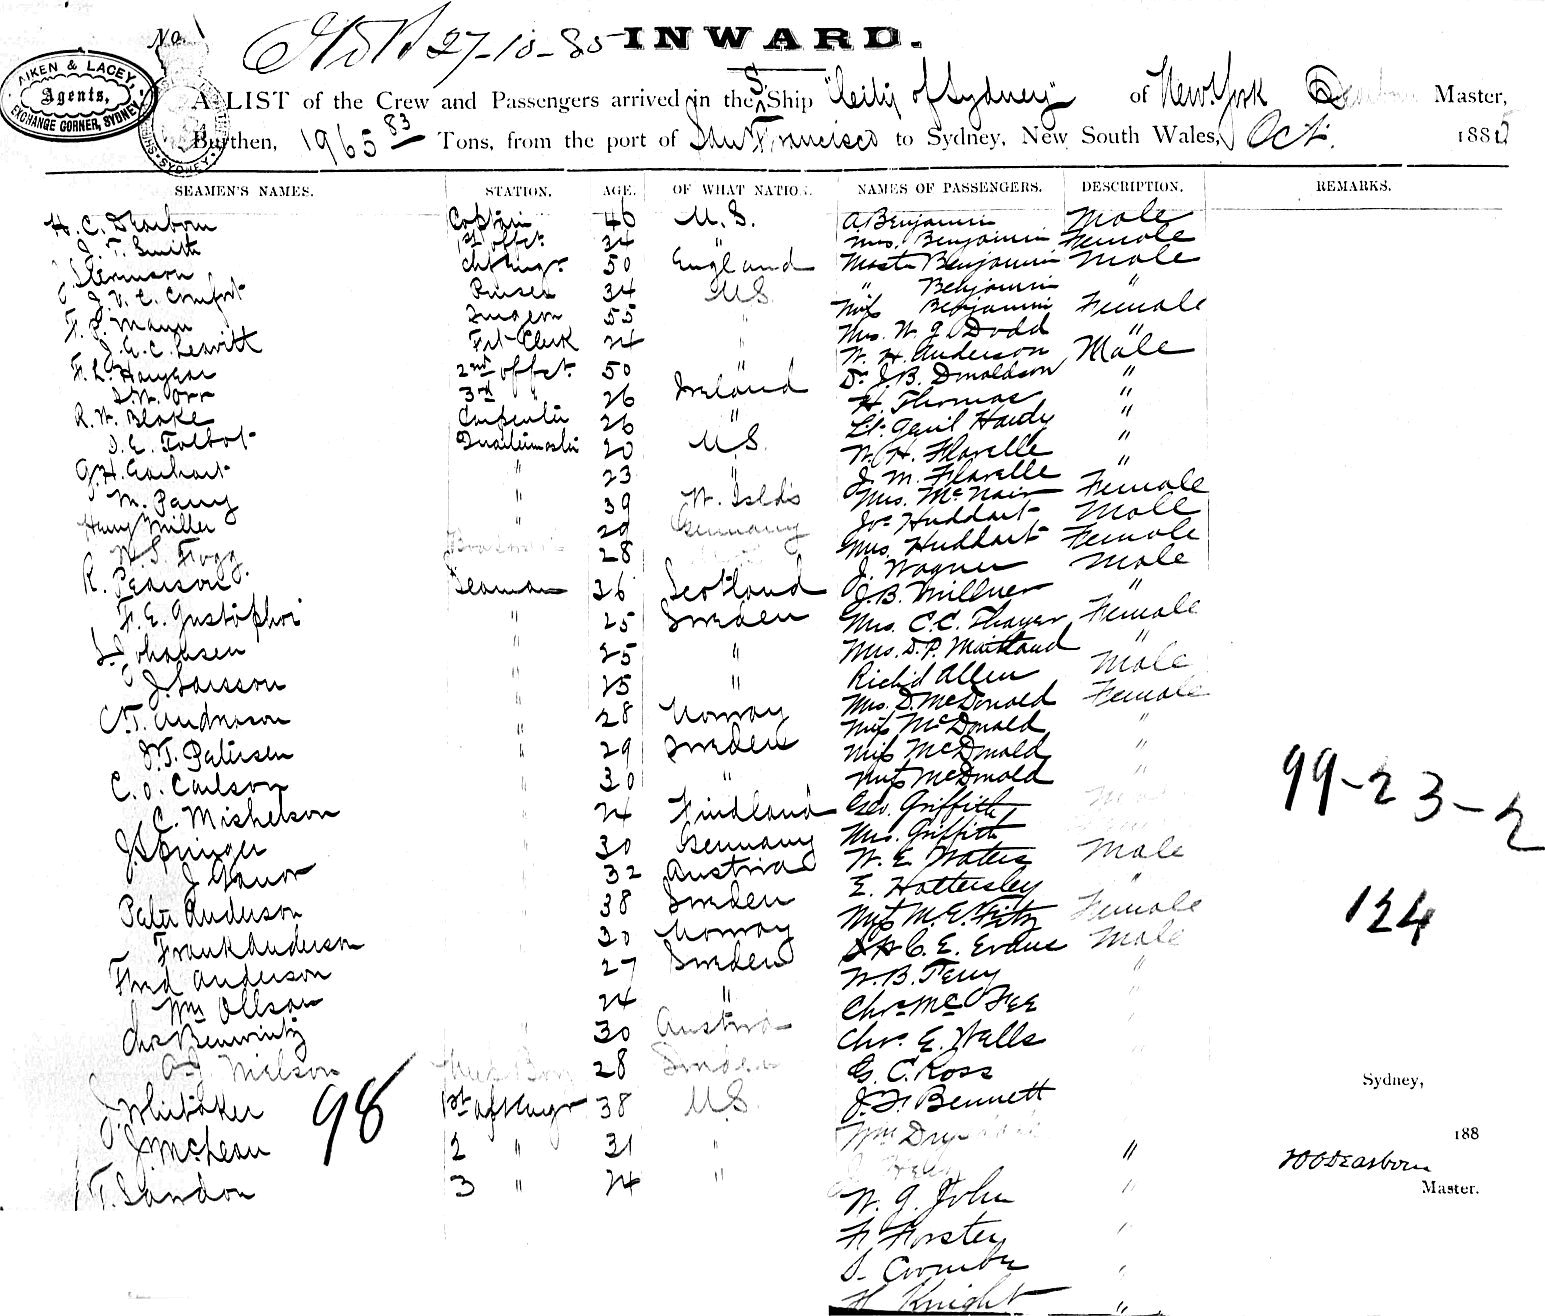 No. 1
27-10-85 INWARD.
AIKEN & LACEY,
Agents,
EXCHANGE CORNER, SYDNEY
A LIST of the Crew and Passengers arrived in the S. Ship "City of Sydney" of New York Dearborn Master,
Burthen, 1965 83 Tons, from the port of San Francisco to Sydney, New South Wales, Oct. 1885
SEAMEN'S NAMES. STATION. AGE. OF WHAT NATION. NAMES OF PASSENGERS. DESCRIPTION. REMARKS.
H. C. Dearborn Captain 46 U.S. A Benjamin Male
J. T. Smith 1st offcr. 34 " Mrs. Benjamin Female
50 England Mastr Benjamin Male
J. V. C. Comfort Purser 34 U.S. " Benjamin "
F. S. Mann Surgeon 55 " Miss Benjamin Female
J. G. C. Leavitt Frt Clerk 24 " Mrs. W. G. Dodd "
2nd offcr. 50 " W. H. Anderson Male
Orr 3rd " 26 Ireland Dr. J. B. Donaldson "
R. W. Blake Carpenter 26 " H. Thomas "
D. E. Talbot 20 U.S. Lt. Hardy "
G. H. Earhart " 23 " W. H. Flavelle "
M. Parry " 39 W. Islds J. M. Flavelle "
Harry Miller " 29 Germany Mrs. McNair Female
W. S. Fogg 28 Jos Huddart Male
R. Pearson Seaman 36 Scotland Mrs. Huddart Female
F. E. " 25 Sweden J. Wagner Male
Johansen " 25 " J. B. Millner "
J. Larsson " 25 " Mrs. C. C. Thayer Female
C. T. Andrason " 28 Norway Mrs. D. P. Maitland "
Petersen " 29 Sweden Richd Allen Male
C. O. Carlson " 30 " Mrs. D. McDonald Female
C. Michelson " 24 Findland Miss McDonald "
J. Springer " 30 Germany Miss McDonald "
J. 32 Austria Miss McDonald "
Peter Anderson " 38 Sweden Geo. Griffith
Frank Anderson 30 Norway Mrs. Griffith
Fred Anderson 27 Sweden W. E. Waters Male
Wm Ollson 24 " E. Hattersley "
Chas 30 Austria Miss M. E. Fitz Female
Nielson Mess Boy 28 Sweden C. E. Evans Male
J. Whitaker 1st 38 U.S. W. B. Terry "
J. McLean 2 " 31 " Chas McFee "
T. Landon 3 " 24 " Chas. E. Wells
G. C. Ross
J. F. Bennett
Wm
W. J. John "
F. Forster "
Coombe "
H Knight "
98
99-23-2
124
Sydney,
188
H C Dearborn
Master.